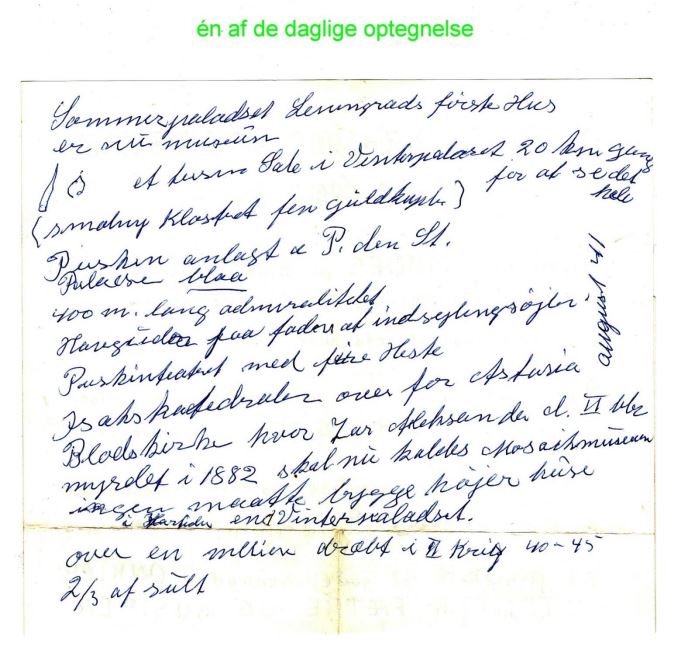 én af de daglige optegnelse
Sommerpaladset Leningrads første Hus
er nu museum
et tusin Sale i Vinterpalæet 20 km gang
for at se det
hele
(smolny Klostret fem guldkupler)
Puskin anlagt a P. den St.
Palæerne blaa
400 m. lang admiralitetet
Havguder paa foden at indsejlingsøjler
august 41
Puskinteatret med fire Heste
Isakskatedralen over for Astoria
Blodskirke hvor Zar Aleksander d. II blev
myrdet i 1882 skal nu kaldes Mosaikmuseum
ingen maatte bygge højer huse
i Zartiden end Vinterpaladset.
over en million dræbt i II Krig 40-45
2/3 af sult